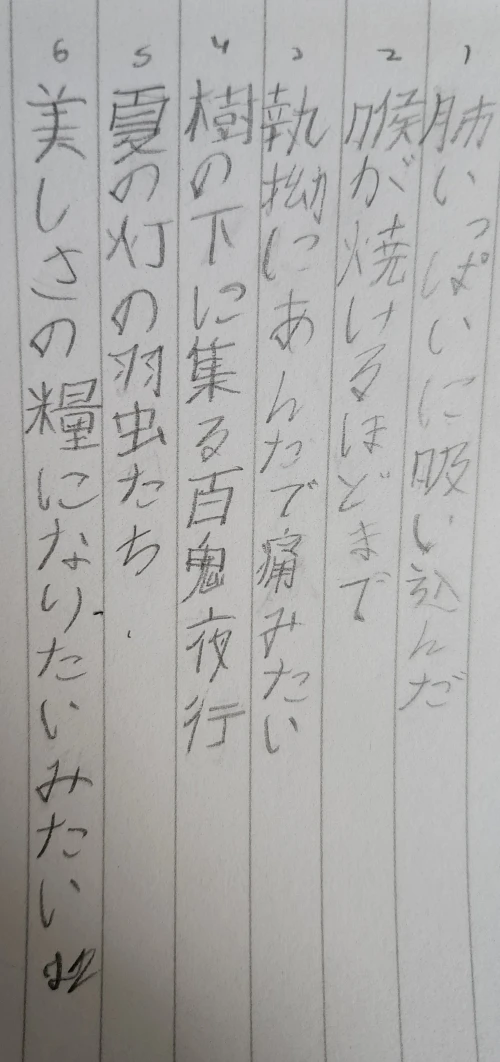 1 肺いっぱいに吸い込んだ
2 喉が焼けるほどまで
3 執拗にあんたで痛みたい
4 樹の下に集る百鬼夜行
5 夏の灯の羽虫たち
6 美しさの糧になりたいみたい